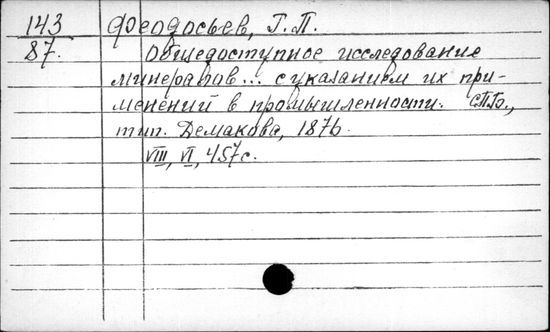 143 Феодосьев, Г. П.
87. Общедоступное исследование
минералов... с указанием их при-
менений в промышленности. СПб.,
тип. Демакова, 1876.
VIII, VI, 457 с.